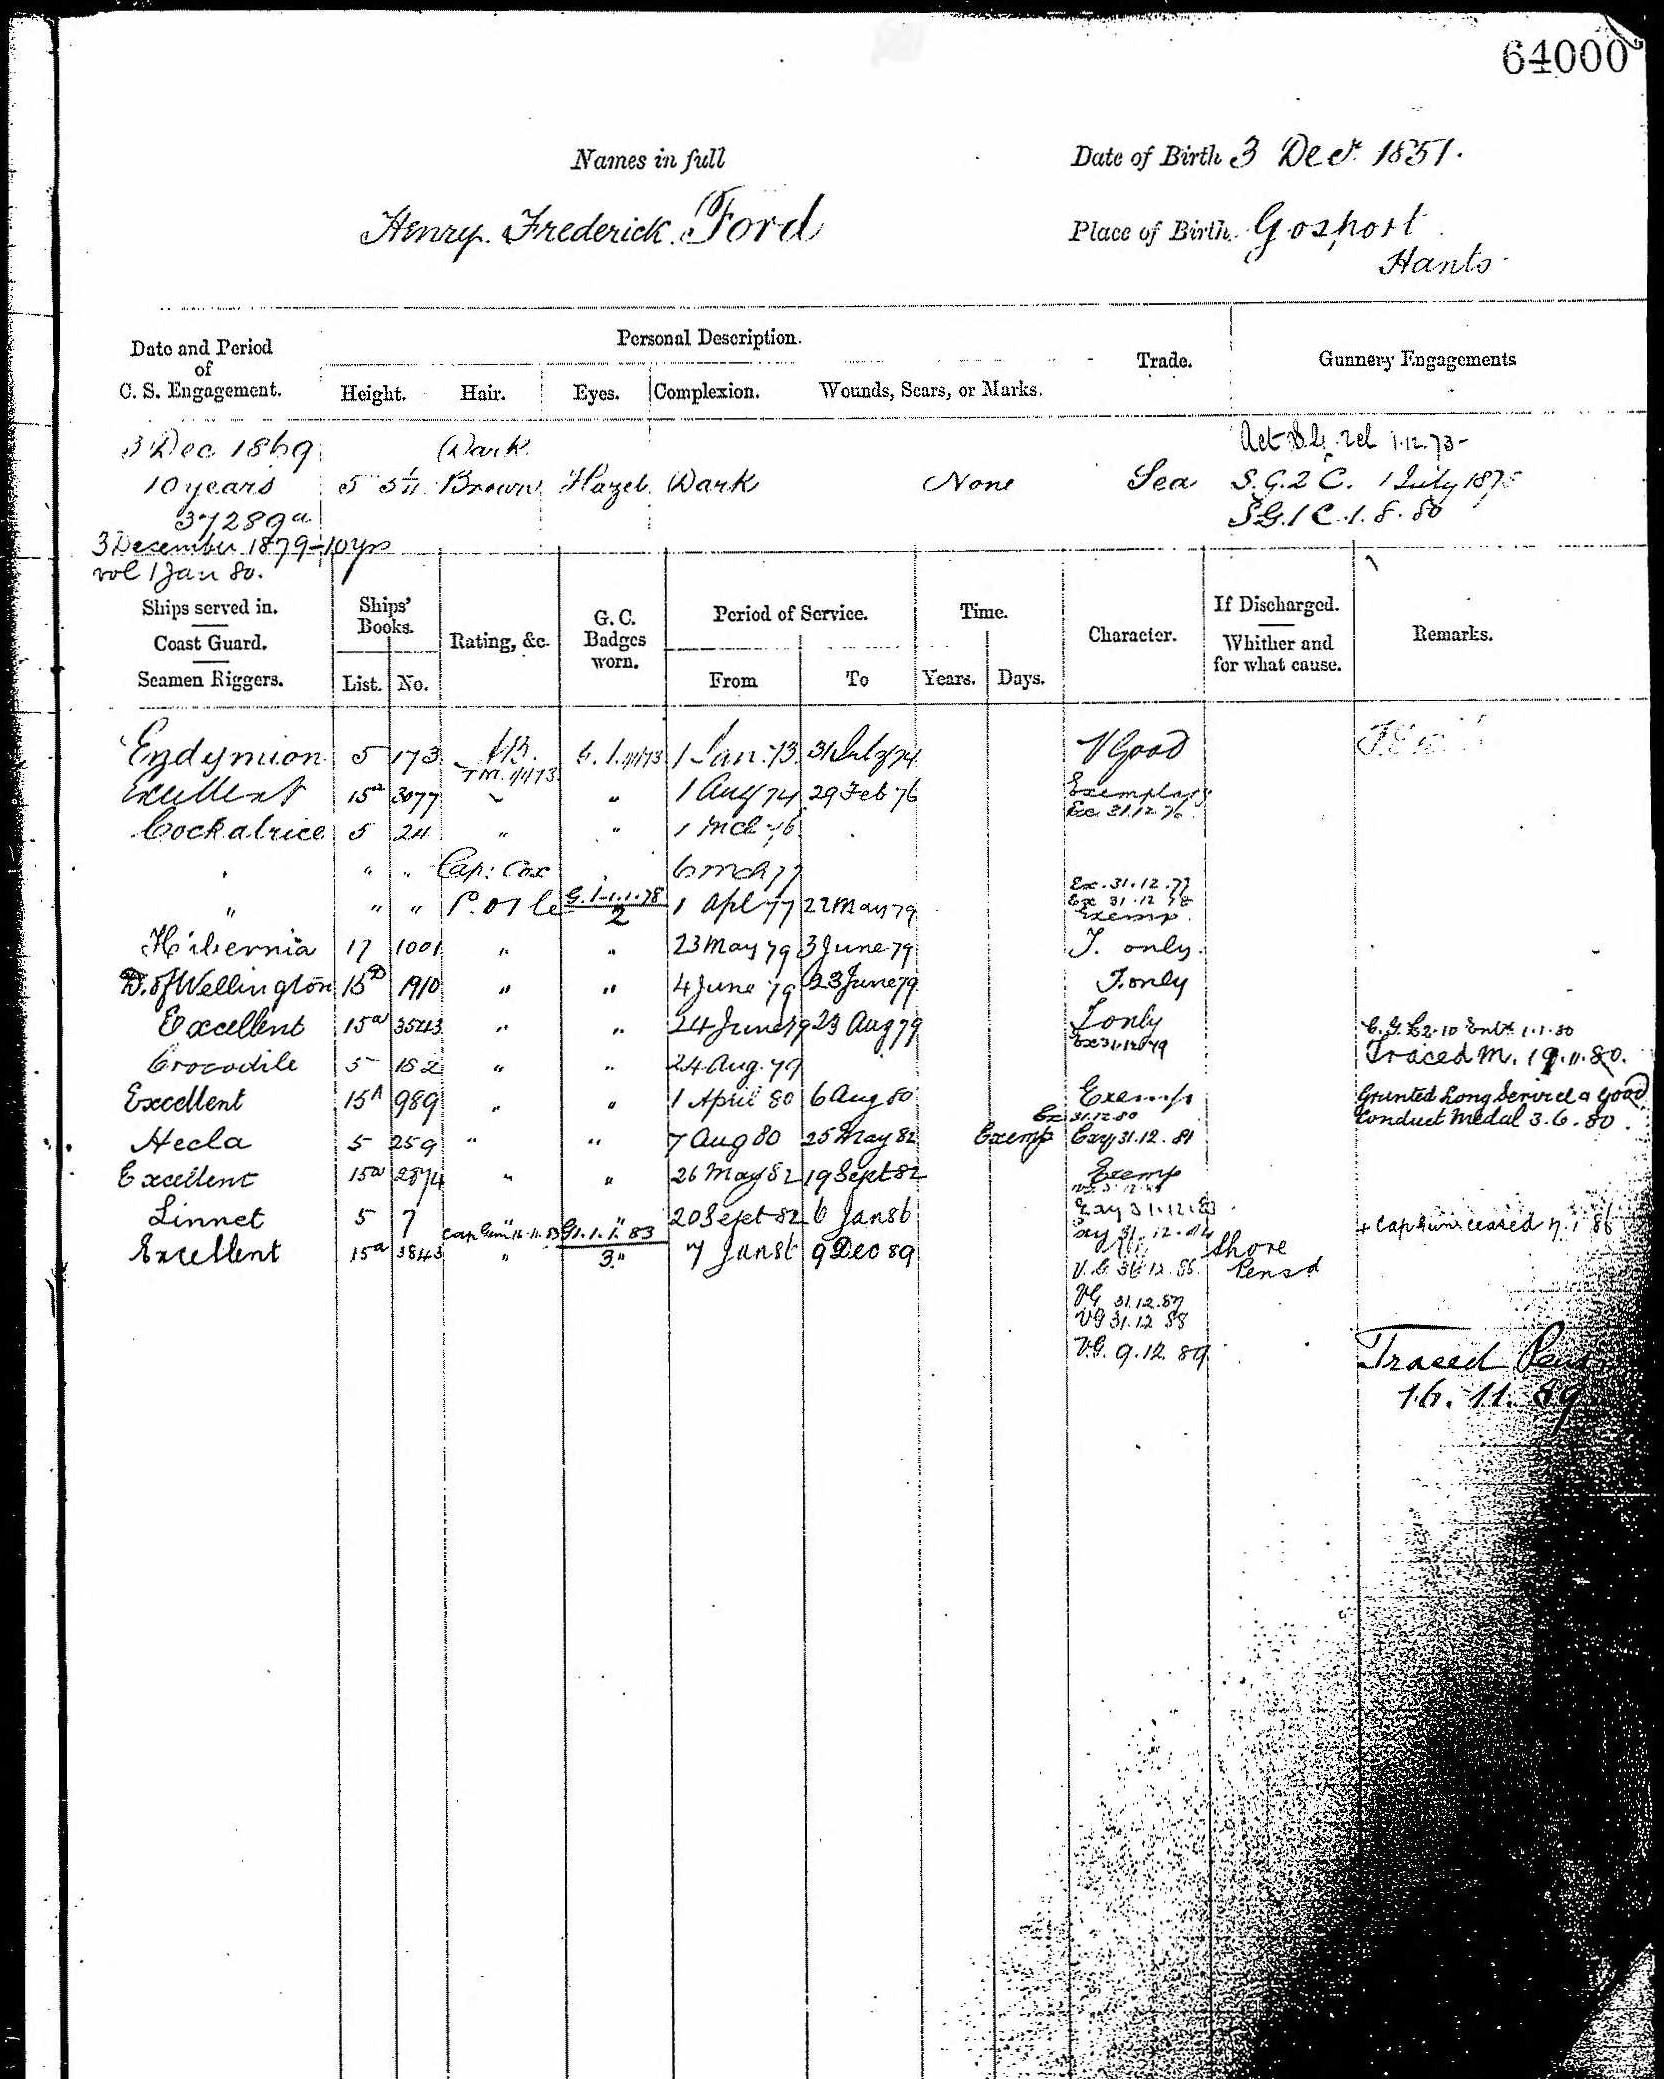 64000
Names in full
Date of Birth 3 Decr 1851.
Henry Frederick Ford
Place of Birth Gosport
Hants
Date and Period of C. S. Engagement.
Personal Description.
Trade.
Gunnery Engagements
Height. Hair. Eyes. Complexion. Wounds, Scars, or Marks.
3 Dec 1869 Dark 1.12.73
10 years 5 5 Brown Hazel Dark None Sea S.G.2 C. 1 July 1875
37289a S.G.1 C. 1.8.80
3 December 1879 - 10 yrs
vol 1 Jan 80.
Ships served in. Coast Guard. Seamen Riggers.
Ships' Books. List. No.
Rating, &c.
G. C. Badges worn.
Period of Service. From To
Time. Years. Days.
Character.
If Discharged. Whither and for what cause.
Remarks.
Endymion 5 173 AB. G. 1. 1/1/73 1 Jan. 73 31 July 74 V Good
T.M. 1/1/73
Excellent 15a 3077 " " 1 Aug 74 29 Feb 76 Exemplary
Ex. 31.12.76
Cockatrice 5 24 " " 1 Mch 76
" " " Cap: Cox 6 Mch 77
Ex. 31.12.77
" " " P.O 1 Cl G. 1-1.1.78 2 1 Apl 77 22 May 79 Ex 31.12 78
Exemp.
Hibernia 17 1001 " " 23 May 79 3 June 79 J. only.
D. of Wellington 15D 1910 " " 4 June 79 23 June 79 J. only
Excellent 15a 3543 " " 24 June 79 23 Aug 79 J only
Ex 31.12.79
Crocodile 5 152 " " 24 Aug. 79 Traced M. 19.11.80.
Excellent 15A 989 " " 1 April 80 6 Aug 80 Exemp Granted Long Service & Good
Ex 31.12.80 Conduct Medal 3.6.80.
Hecla 5 259 " " 7 Aug 80 25 May 82 Exemp Exy 31.12.81
Excellent 15a 2874 " " 26 May 82 19 Sept 82 Exemp
Linnet 5 7 " 20 Sept 82 6 Jan 86 Exy 31.12.83
G. 1.1.83 Exy 31.12.84 + Cap Gun ceased 7.1.86
Excellent 15a 3843 " 3 " 7 Jan 86 9 Dec 89 Shore
V.G. 31.12.86 Pensd
VG 31.12.87
VG 31.12 88
V.G. 9.12.89
Traced
16.11.89